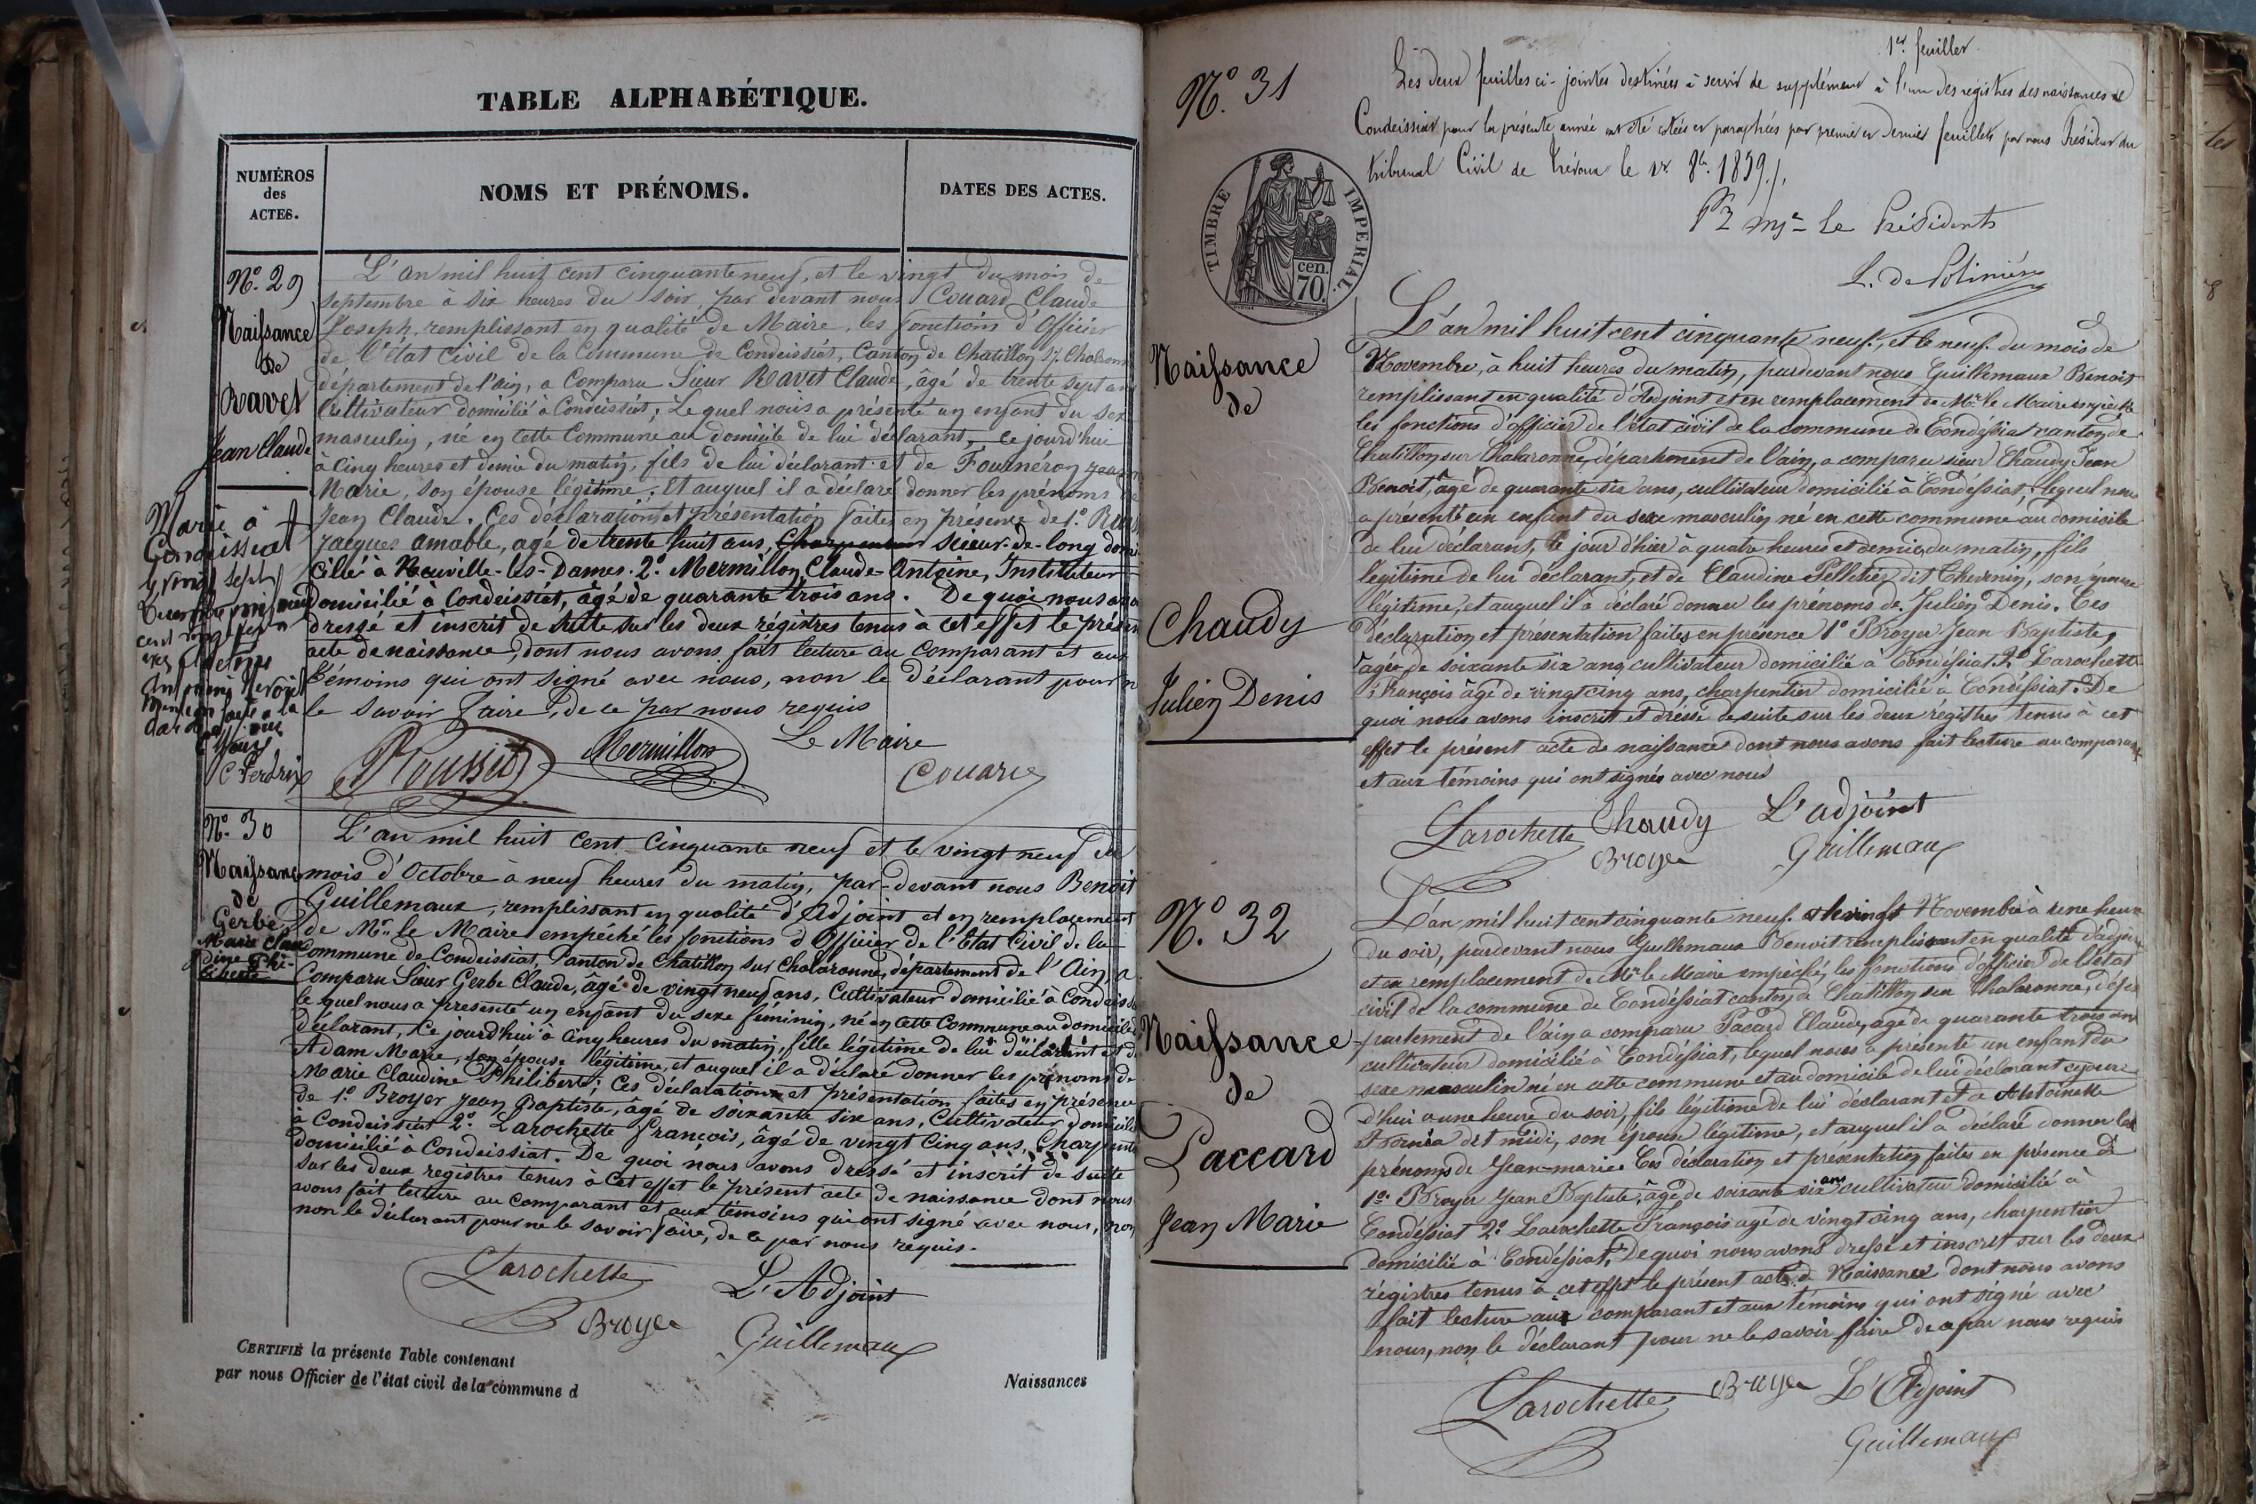 TABLE ALPHABÉTIQUE.
NUMÉROS
des
ACTES.
NOMS ET PRÉNOMS.
DATES DES ACTES.
N.º 29
Naissance
de
Ravet
Jean Claude
L'an mil huit cent cinquante neuf, et le vingt du mois de
septembre à six heures du soir, par devant nous Couard Claude
Joseph, remplissant en qualité de Maire, les fonctions d'Officier
de l'état civil de la Commune de Condeissiat, Canton de Chatillon s/. Chalaronne
département de l'ain, a Comparu Sieur Ravet Claude, âgé de trente sept ans
Cultivateur domicilié à Condeissiat, Lequel nous a présenté un enfant du sexe
masculin, né en cette Commune au domicile de lui déclarant, ce jourd'hui
à cinq heures et demie du matin, fils de lui déclarant et de Fournéron
Marie, son épouse légitime. Et auquel il a déclaré donner les prénoms de
Jean Claude. Ces déclaration et présentation faites en présence de 1.º
Jacques amable, agé de trente huit ans, Charpentier scieur-de-long domi
cilié à Neuville-les-Dames. 2.º Mermillon Claude-Antoine, Instituteur
domicilié à Condeissiat, âgé de quarante trois ans. De quoi nous avons
dressé et inscrit de suite sur les deux régistres tenus à cet effet le présent
acte de naissance, dont nous avons fait lecture au comparant et aux
témoins qui ont signé avec nous, non le déclarant pour ne
le savoir faire, de ce par nous requis
Marié à
Condeissiat
le vingt sept
cent
Mermillon
Le Maire
Couard
C Perdrix
N.º 30
Naissance
de
Gerbe
Marie Clau
dine Phi-
liberte
L'an mil huit cent cinquante neuf et le vingt neuf du
mois d'Octobre à neuf heures du matin, par-devant nous Benoit
Guillemaux, remplissant en qualité d'Adjoint et en remplacement
de Mr. le Maire empéché les fonctions d'Officier de l'Etat Civil de la
Commune de Condeissiat, Canton de Chatillon sur Chalaronne, département de l'Ain, a
Comparu Sieur Gerbe Claude, âgé de vingt neuf ans, Cultivateur domicilié à Condeissiat
lequel nous a presenté un enfant du sexe féminin, né en cette Commune au domicile
déclarant, ce jourd'hui à cinq heures du matin, fille légitime de lui déclarant et de
Adam Marie, son épouse légitime, et auquel il a déclaré donner les prénoms de
Marie Claudine Philiberte; Ces déclaration et présentation faites en présence
de 1.º Broyer Jean Baptiste, âgé de soixante six ans, Cultivateur domicilié
à Condeissiat 2.º Larochette françois, âgé de vingt cinq ans, Charpentier
domicilié à Condeissiat. De quoi nous avons dressé et inscrit de suite
sur les deux registres tenus à cet effet le présent acte de naissance dont nous
avons fait lecture au comparant et aux témoins qui ont signé avec nous,
non le déclarant pour ne le savoir faire, de ce par nous requis.
Larochette
L'Adjoint
Broyer
Guillemaux
CERTIFIÉ la présente Table contenant
par nous Officier de l'état civil de la commune d
Naissances
1er. feuillet
Les deux feuilles ci-jointes destinées à servir de supplément à l'un des registres des naissances de
Condeissiat pour la présente année ont été cotées et paraphées par premier et dernier feuillets par nous Président du
tribunal Civil de Trévoux le 8bre. 1859.
le Président
L. de Polinière
N.º 31
TIMBRE IMPERIAL.
cen.
70.
Naissance
de
Chaudy
Julien Denis
L'an mil huit cent cinquante neuf, et le neuf du mois de
Novembre, à huit heures du matin, pardevant nous Guillemaux Benoit
remplissant en qualité d'Adjoint et en remplacement de Mr. le Maire empêché
les fonctions d'officier de l'état civil de la commune de Condessiat canton de
Chatillon sur Chalaronne, département de l'ain, a comparu sieur Chaudy Jean
Benoit, âgé de quarante six ans, cultivateur domicilié à Condessiat, lequel nous
a présenté un enfant du sexe masculin né en cette commune au domicile
de lui déclarant, le jour d'hier à quatre heures et demie du matin, fils
légitime de lui déclarant, et de Claudine Pelletier dit Thevenin, son épouse
légitime, et auquel il a déclaré donner les prénoms de Julien Denis. Ces
déclaration et présentation faites en présence 1º Broyer Jean Baptiste,
agée de soixante six ans cultivateur domicilié à Condéssiat 2º Larochette
François âgé de vingt cinq ans, charpentier domicilié à Condéssiat. De
quoi nous avons inscrit et dréssé de suite sur les deux régistres tenus à cet
effet le présent acte de naissance dont nous avons fait lecture au comparant
et aux témoins qui ont signés avec nous
Larochette Chaudy L'adjoint
Broyer Guillemaux
N.º 32
Naissance
de
Paccard
Jean Marie
L'an mil huit cent cinquante neuf et le vingt Novembre à une heure
du soir, pardevant nous Guillemaux Benoit remplissant en qualité d'adjoint
et en remplacement de Mr. le Maire empêché, les fonctions d'officier de l'état
civil de la commune de Condéssiat canton de Chatillon sur Chalaronne, dépar
partement de l'ain a comparu Pacard Claude, agé de quarante trois ans
cultivateur domicilié à Condéssiat, lequel nous a présenté un enfant du
sexe masculin né en cette commune et au domicile de lui déclarant
d'hui a une heure du soir, fils légitime de lui déclarant et de Antoinette
dit midi, son épouse légitime, et auquel il a déclaré donner les
prénoms de Jean-marie. Ces déclaration et présentation faites en présence de
1º. Broyer Jean Baptiste, âgé de soixante six ans cultivateur domicilié à
Condéssiat 2º. Larochette François agé de vingt cinq ans, charpentier
domicilié à Condéssiat. De quoi nous avons dressé et inscrit sur les deux
régistres tenus à cet effet le présent acte de Naissance dont nous avons
fait lecture aux comparant et aux témoins qui ont signé avec
nous, non le déclarant pour ne le savoir faire de ce par nous requis
Larochette Broyer L'Adjoint
Guillemaux